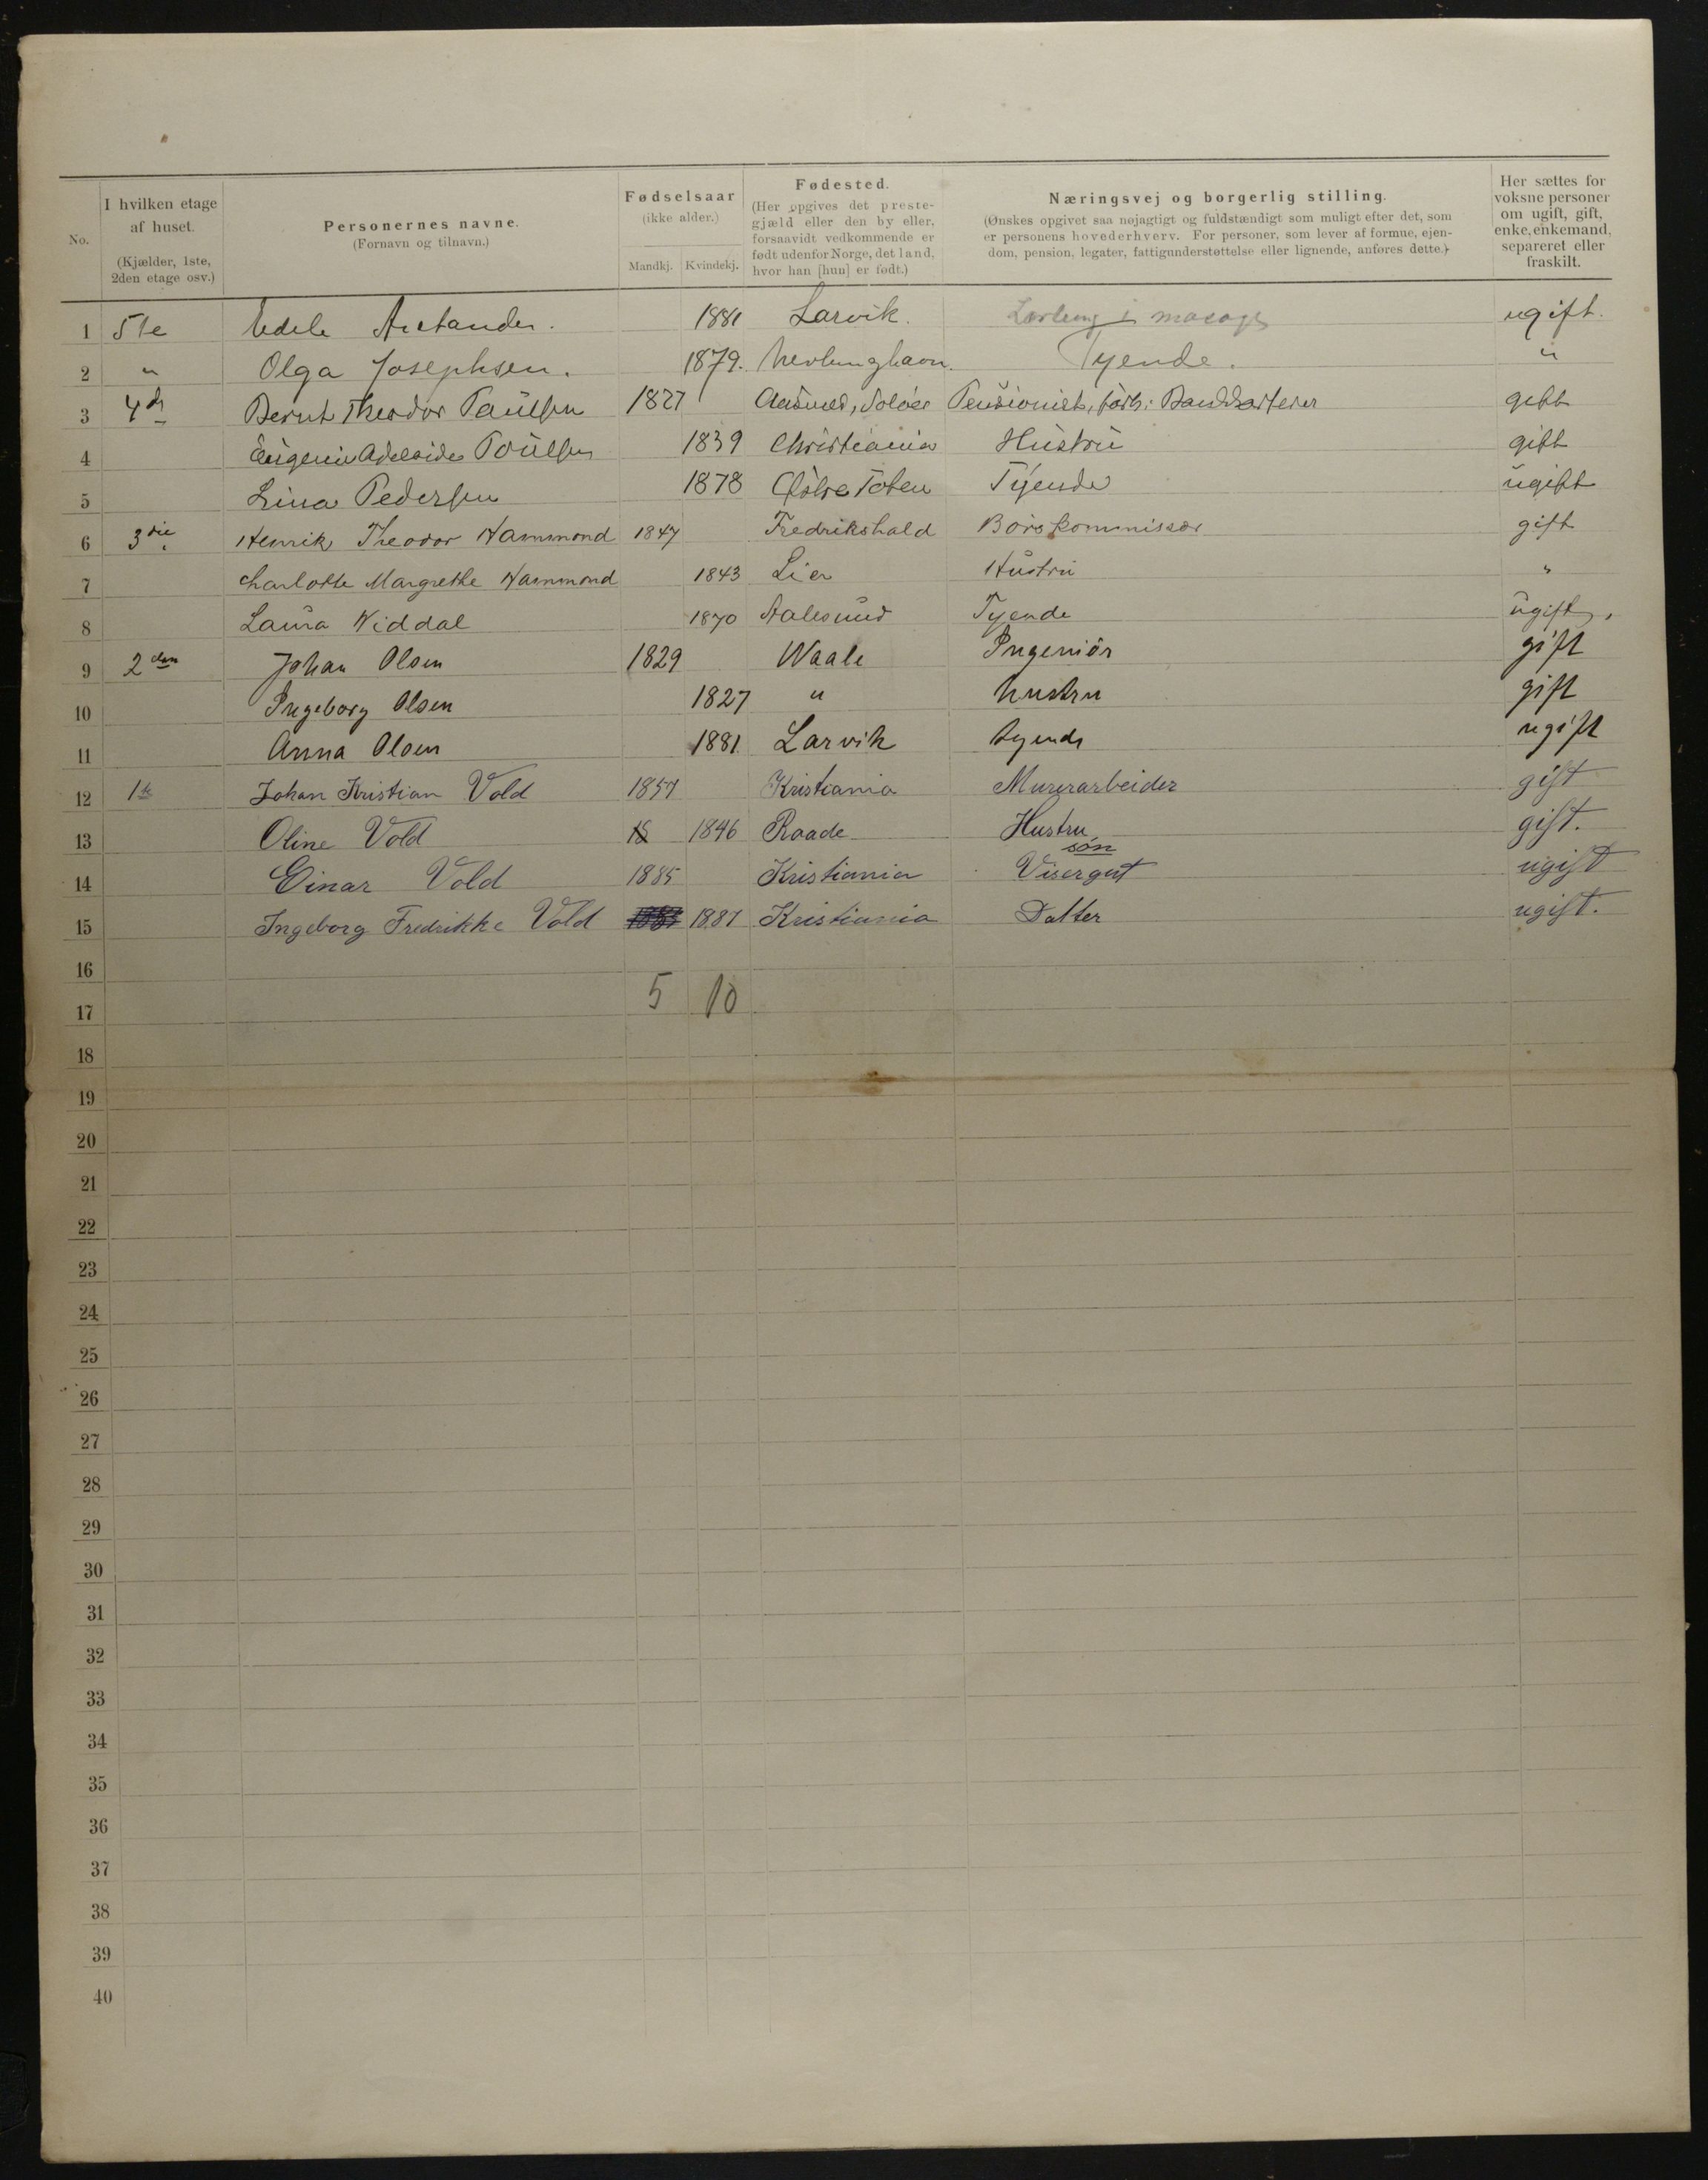 No.
I hvilken etage af huset.
(Kjælder, 1ste, 2den etage osv.)
Personernes navne.
(Fornavn og tilnavn.)
Fødselsaar
(ikke alder.)
Mandkj. Kvindekj.
Fødested.
(Her opgives det prestegjæld eller den by eller, forsaavidt vedkommende er født udenfor Norge, det land, hvor han [hun] er født.)
Næringsvej og borgerlig stilling.
(Ønskes opgivet saa nøjagtigt og fuldstændigt som muligt efter det, som er personens hovederhverv. For personer, som lever af formue, ejendom, pension, legater, fattigunderstøttelse eller lignende, anføres dette.)
Her sættes for voksne personer om ugift, gift, enke, enkemand, separeret eller fraskilt.
1 5te Edele 1881 Larvik. i ugift.
2 " Olga Josephsen. 1879. Tyende. "
3 Bernt Theodor Paulsen 1827 Aasnes, Soløer Pensionist, gift
4 Eugenie Adelaide Poulsen 1839 Christiania Hustru gift
5 Lina Pedersen 1878 Østre Toten Tyende ugift
6 3die Henrik Theodor Hammond 1847 Fredrikshald Børskommissær gift
7 Charlotte Margrethe Hammond 1843 Lier Hustru "
8 Laura Widdal 1870 Aalesund Tyende ugift,
9 2den Johan Olsen 1829 Waale Ingeniör gift
10 Ingeborg Olsen 1827 " hustru gift
11 Anna Olsen 1881 Larvik tyende ugift
12 1te Johan Kristian Vold 1857 Kristiania Murerarbeider gift
13 Oline Vold 18 1846 Raade Hustru gift.
14 Einar Vold 1885 Kristiania søn Visergut ugift
15 Ingeborg Fredrikke Vold 1887 Kristiania Datter ugift.
16
5 10
17
18
19
20
21
22
23
24
25
26
27
28
29
30
31
32
33
34
35
36
37
38
39
40